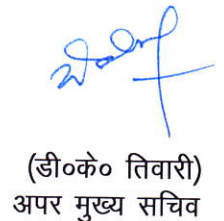 (डी०के० तिवारी)
अपर मुख्य सचिव